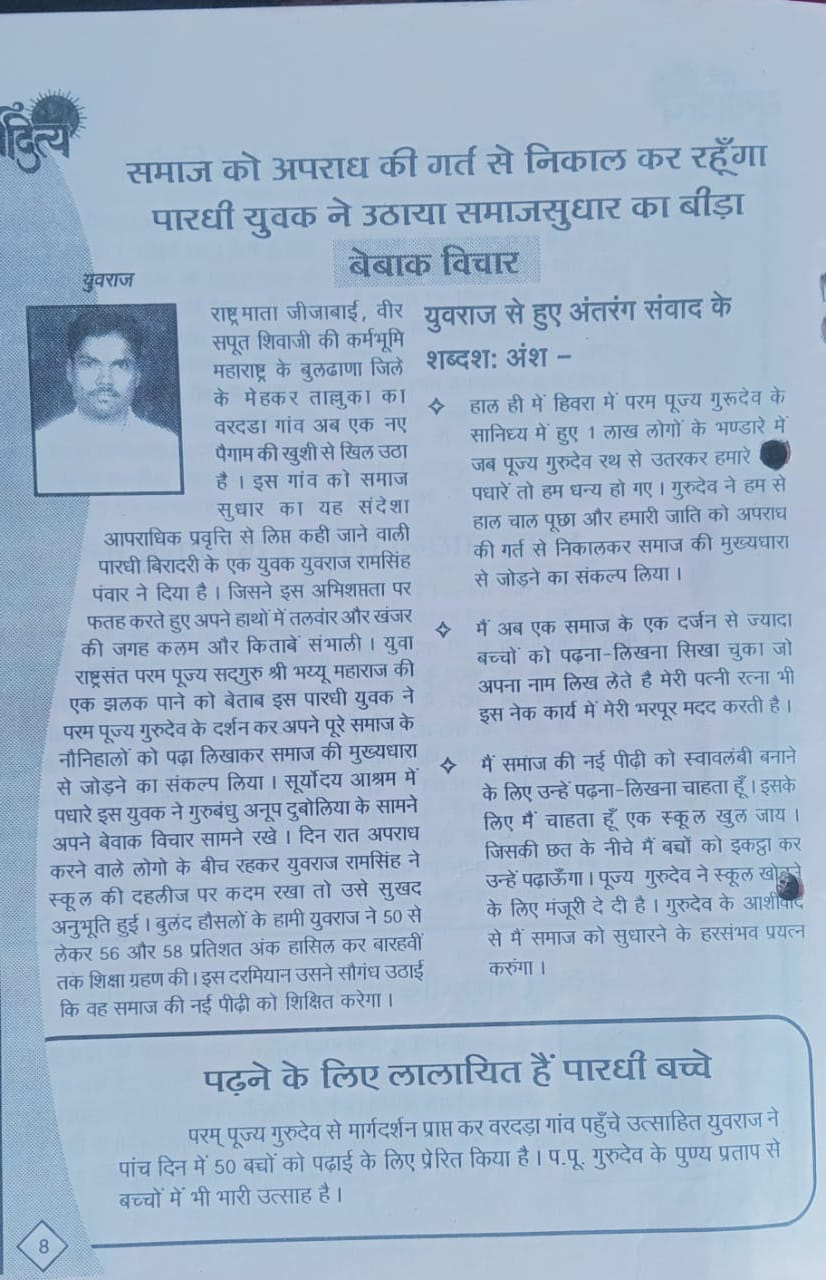 दित्य
समाज को अपराध की गर्त से निकाल कर रहूँगा
पारधी युवक ने उठाया समाजसुधार का बीड़ा
बेबाक विचार
युवराज
राष्ट्रमाता जीजाबाई, वीर
सपूत शिवाजी की कर्मभूमि
महाराष्ट्र के बुलढाणा जिले
के मेहकर ताल्लुका का
वरदडा गांव अब एक नए
पैगाम की खुशी से खिल उठा
है । इस गांव को समाज
सुधार का यह संदेशा
आपराधिक प्रवृत्ति से लिप्त कही जाने वाली
पारधी बिरादरी के एक युवक युवराज रामसिंह
पंवार ने दिया है । जिसने इस अभिशप्तता पर
फतह करते हुए अपने हाथों में तलवांर और खंजर
की जगह कलम और किताबें संभाली । युवा
राष्ट्रसंत परम पूज्य सद्गुरु श्री भय्यू महाराज की
एक झलक पाने को बेताब इस पारधी युवक ने
परम पूज्य गुरुदेव के दर्शन कर अपने पूरे समाज के
नौनिहालों को पढ़ा लिखाकर समाज की मुख्यधारा
से जोड़ने का संकल्प लिया । सूर्योदय आश्रम में
पधारे इस युवक ने गुरुबंधु अनूप दुबोलिया के सामने
अपने बेवाक विचार सामने रखे । दिन रात अपराध
करने वाले लोगो के बीच रहकर युवराज रामसिंह ने
स्कूल की दहलीज पर कदम रखा तो उसे सुखद
अनुभूति हुई । बुलंद हौसलों के हामी युवराज ने 50 से
लेकर 56 और 58 प्रतिशत अंक हासिल कर बारहवीं
तक शिक्षा ग्रहण की । इस दरमियान उसने सौगंध उठाई
कि वह समाज की नई पीढ़ी को शिक्षित करेगा ।
युवराज से हुए अंतरंग संवाद के
शब्दश: अंश –
✧ हाल ही में हिवरा में परम पूज्य गुरूदेव के
सानिध्य में हुए 1 लाख लोगों के भण्डारे में
जब पूज्य गुरुदेव रथ से उतरकर हमारे
पधारें तो हम धन्य हो गए । गुरुदेव ने हम से
हाल चाल पूछा और हमारी जाति को अपराध
की गर्त से निकालकर समाज की मुख्यधारा
से जोड़ने का संकल्प लिया ।
✧ मैं अब एक समाज के एक दर्जन से ज्यादा
बच्चों को पढ़ना-लिखना सिखा चुका जो
अपना नाम लिख लेते है मेरी पत्नी रत्ना भी
इस नेक कार्य में मेरी भरपूर मदद करती है ।
✧ मैं समांज की नई पीढ़ी को स्वावलंबी बनाने
के लिए उन्हें पढ़ना-लिखना चाहता हूँ । इसके
लिए मैं चाहता हूँ एक स्कूल खुल जाय ।
जिसकी छत के नीचे मैं बचों को इकट्ठा कर
उन्हें पढ़ाऊँगा । पूज्य गुरुदेव ने स्कूल खोलने
के लिए मंजूरी दे दी है । गुरुदेव के आर्शीवाद
से मैं समाज को सुधारने के हरसंभव प्रयत्न
करुंगा ।
पढ़ने के लिए लालायित हैं पारधी बच्चे
परम् पूज्य गुरुदेव से मार्गदर्शन प्राप्त कर वरदड़ा गांव पहुँचे उत्साहित युवराज ने
पांच दिन में 50 बच्चों को पढ़ाई के लिए प्रेरित किया है । प.पू. गुरुदेव के पुण्य प्रताप से
बच्चों में भी भारी उत्साह है ।
8